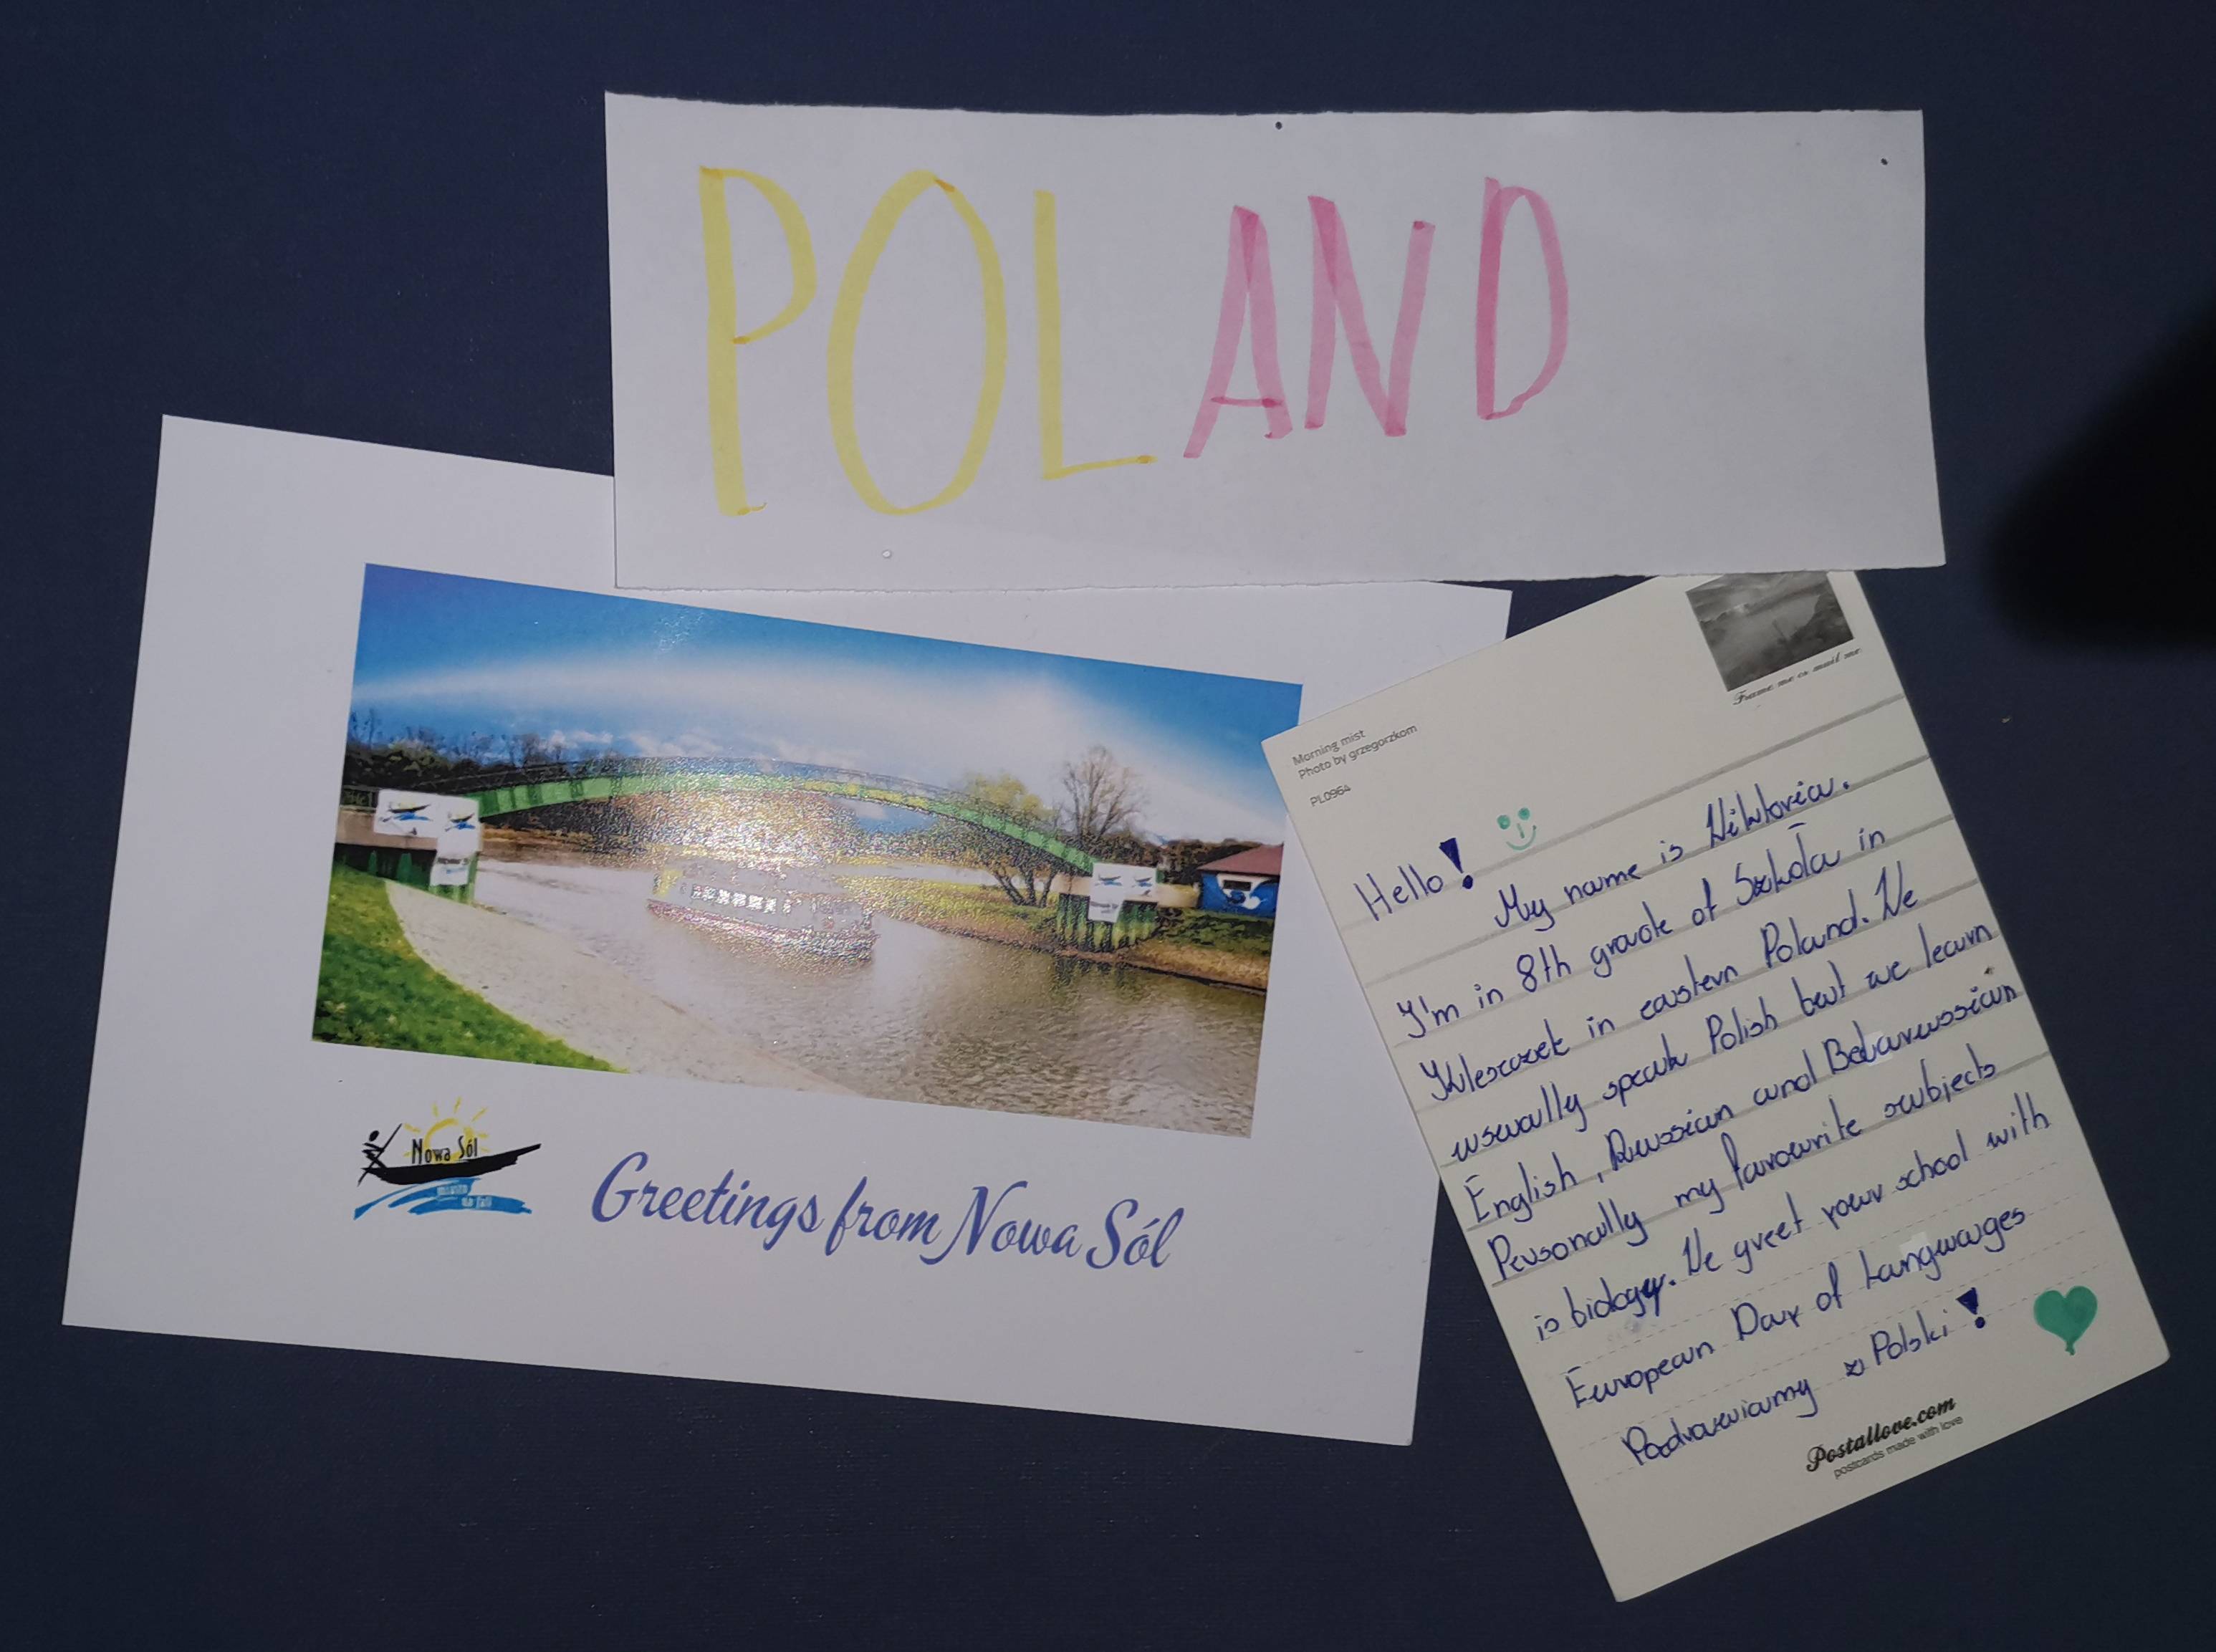 POLAND
Nowa Sól
miasto
na fali
Greetings from Nowa Sól
Frame me or mail me
Morning mist
Photo by grzegorzkom
PL0964
Hello!
My name is Wiktoria.
I'm in 8th grade of Szkoła in
Kleszczele in eastern Poland. We
usually speak Polish but we learn
English, Russian and Belarussian
Personally my favourite subjects
is biology. We greet your school with
European Day of Languages
Pozdrawiamy z Polski!
Postallove.com
postcards made with love